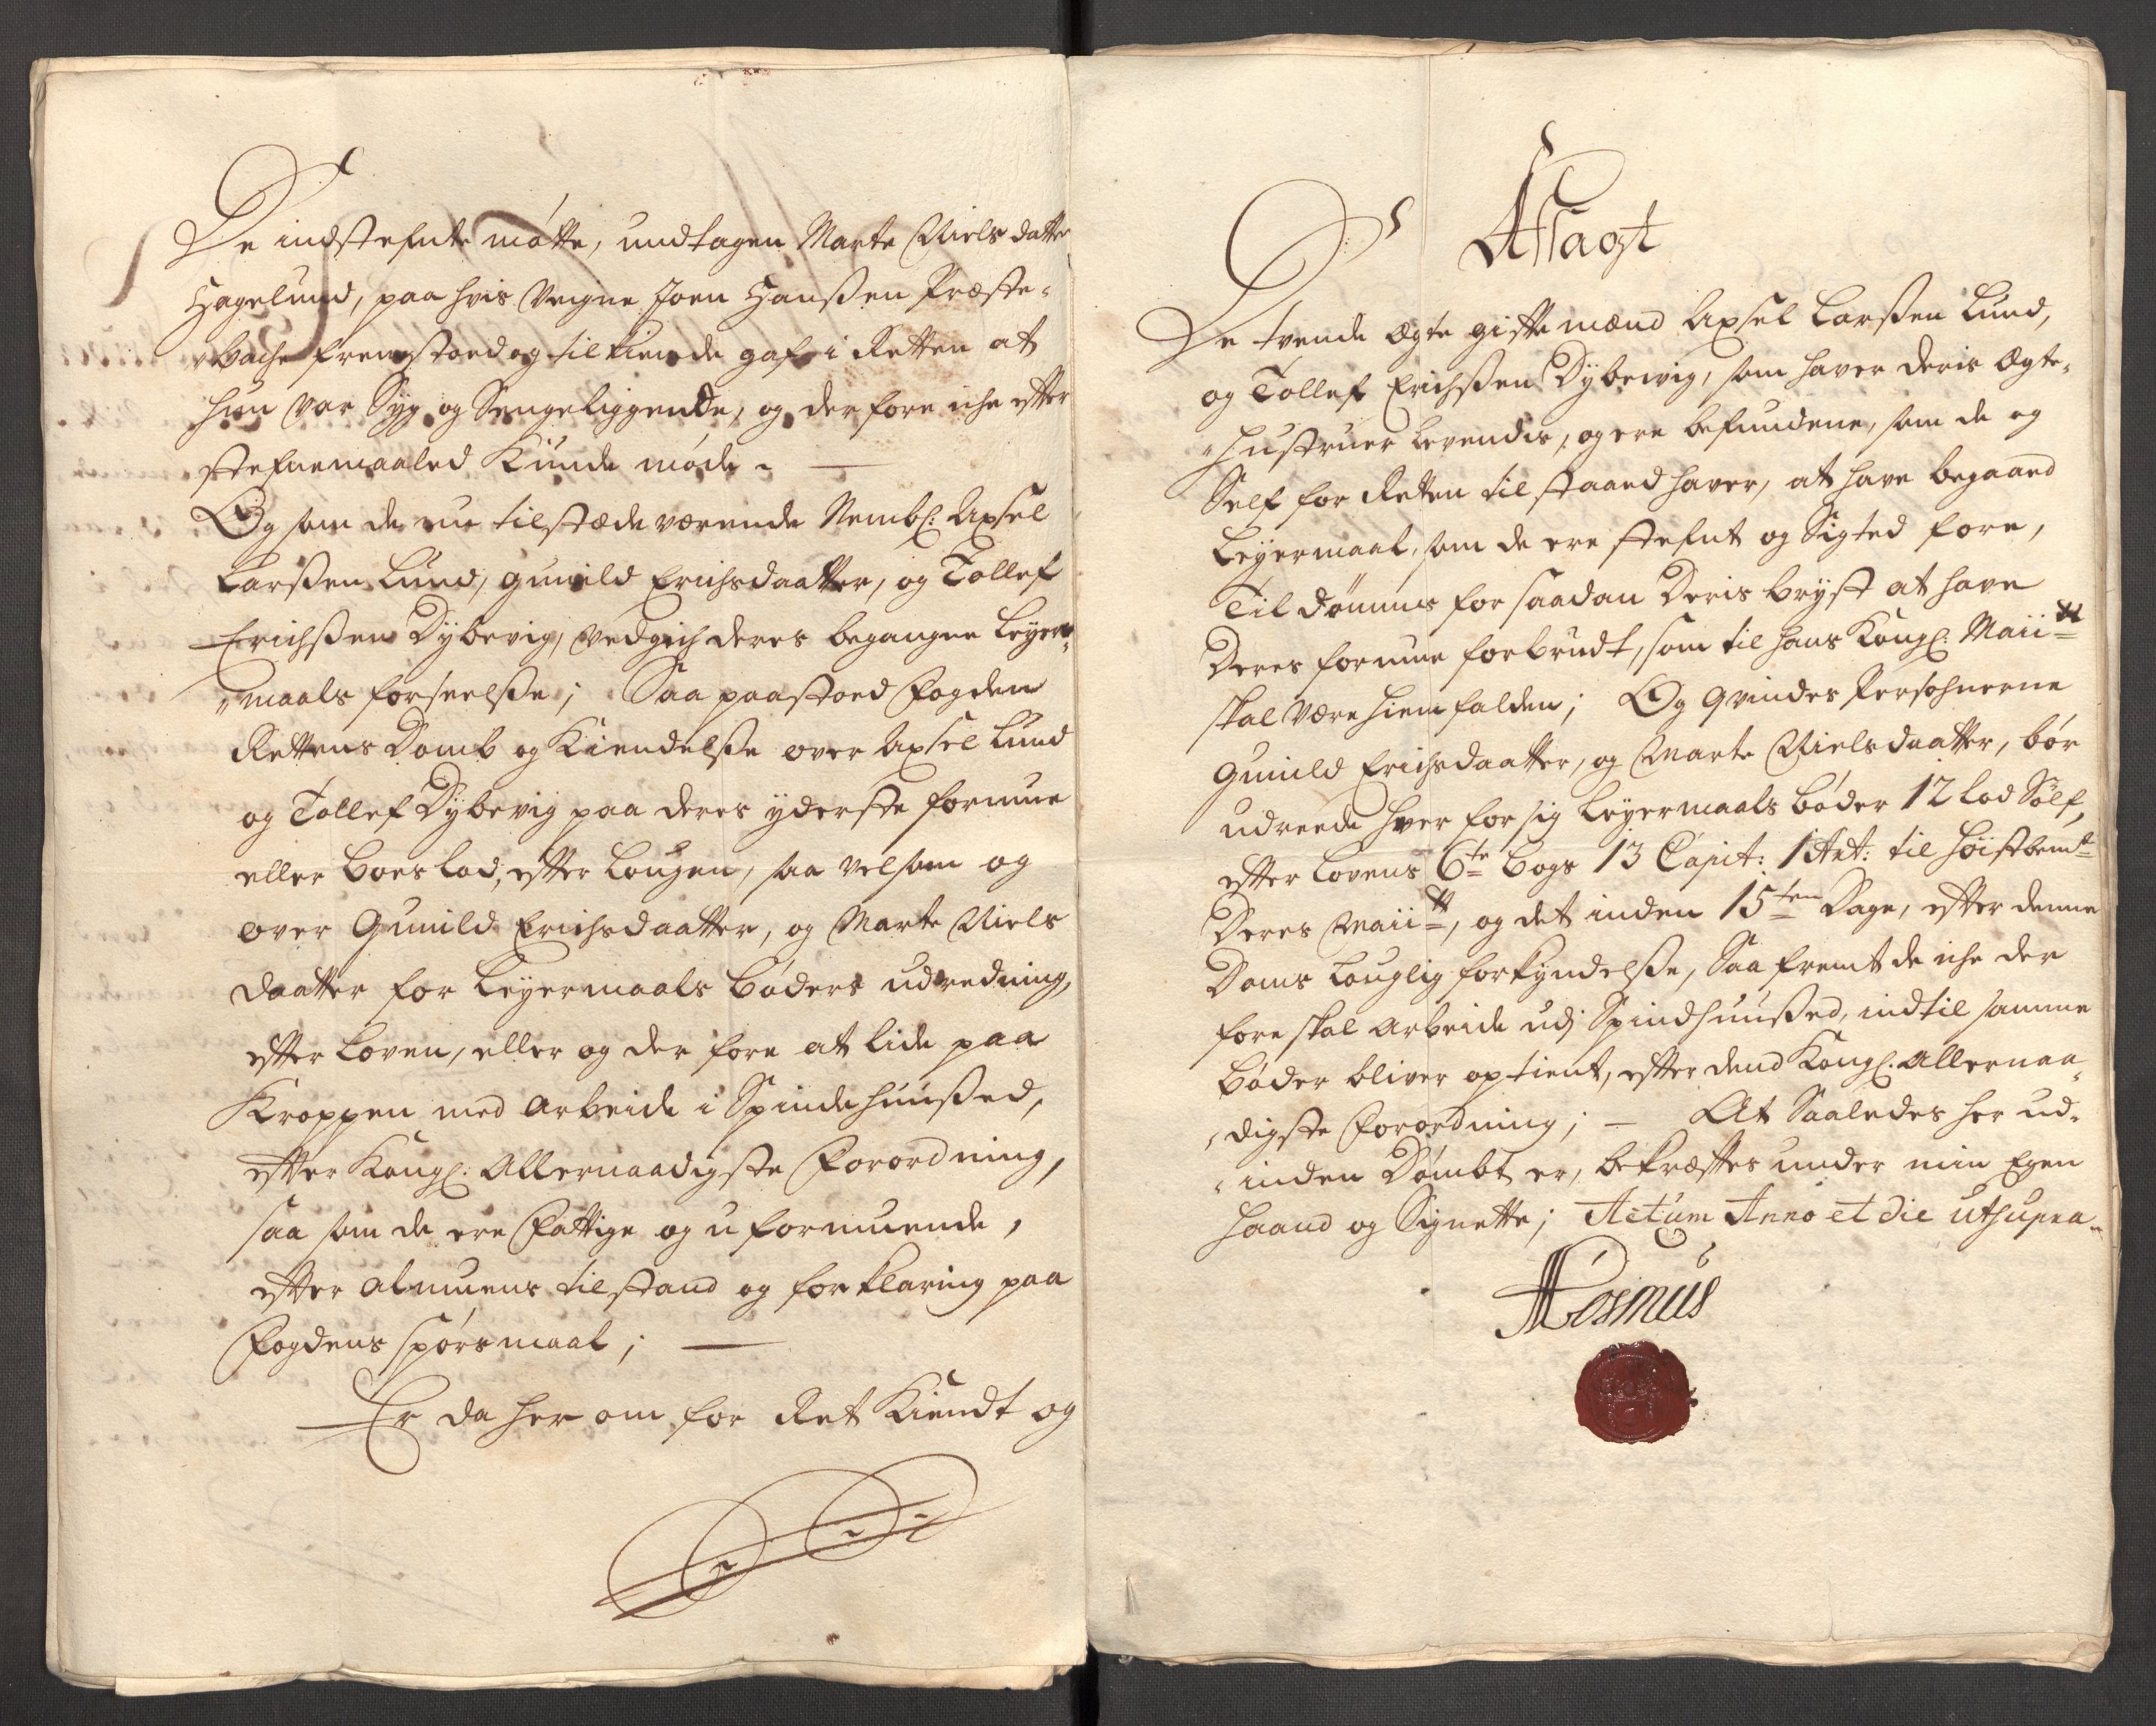 De indstefnte møtte, undtagen Marte Nielsdatter
Hagelund, paa hvis Veigne Joen Hanßen Præste-
"bache fremstoed og tilkiende gaf i Retten at
hun var Syg og Sengeliggende, og derfore iche efter
stefnemaaled Kunde møde.
Og som de nu tilstæde værende Nembl: Axsel
Larßen Lund, Gunild Erichsdaatter, og Tollef
Erichßen Dybevig, vedgich deres begangne Leyer-
"maals forseelße; Saa paastoed Fogden
Rettens Domb og Kiendelße over Axsel Lund
og Tollef Dybevig paa deres yderste formue
eller boeslod, efter Lougen, saa velsom og
over Gunild Erichsdaatter, og Marte Niels
daatter for Leyermaals bøders udredning,
efter Loven, eller og derfore at lide paa
Kroppen med Arbeide i Spindehuußed,
efter Kongl: Allernaadigste Forordning,
saa som de ere Fattige og uformuende,
efter Almuens tilstand og forklaring paa
Fogdens spørsmaal;
Er da her om for Ret Kiendt og
Afsagt
De tvende Ægte gifte mænd Axsel Larßen Lund,
og Tollef Erichßen Dybevig, som haver deris Ægte-
"hustruer levendis, og ere befundene, som de og
Self for Retten tilstaaed haver, at have begaaed
Leyermaal, som de ere stefnt og Sigted fore,
Tildømmes for saadan Deris bryst at have
Deres formue forbrudt, som til hans Kongl: Maiitt
skal være hiemfalden; Og qvindes Persohnerne
Gunild Erichsdaatter, og Marte Nielsdaatter, bør
udreede hver for sig Leyermaals bøder 12 lod Sølf,
efter Lovens 6te bogs 13 Capit: 1 Art: til høistbemte
Deres Maiitt, og det inden 15ten Dage, efter denne
Doms Louglig forkyndelße, Saa fremt de iche der
fore skal Arbeide udj Spindhuußed, indtil samme
bøder bliver optient, efter dend Kongl. Allernaa-
"digste Forordning; At Saaledes her ud-
"inden Dømbt er, bekræftes under min Egen
haand og Signette; Actum Anno et die utsupra.